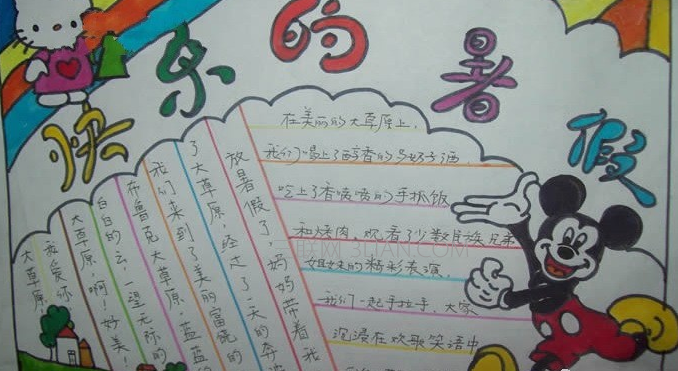 快乐的暑假
放暑假了,妈妈带着我
了大草原 经过了一天的奔
我们来到了美丽富饶的
布鲁克大草原 蓝蓝的
白白的云,一望无际的
大草原 啊!好美!
我爱你
大草原
在美丽的大草原上,
我们喝上了醇香的马奶子酒,
吃上了香喷喷的手抓饭
和烤肉,观看了少数民族兄弟
姐妹的精彩表演,
我们一起手拉手,大家
沉浸在欢歌笑语中